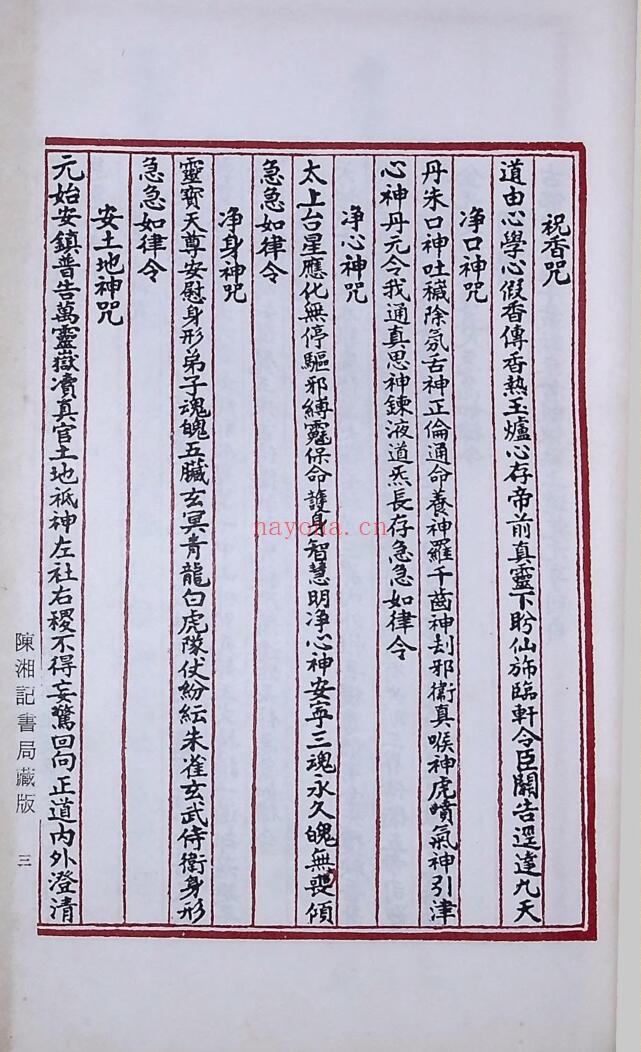 祝香咒
道由心學心假香傳香熱玉爐心存帝前真靈下盻仙斾臨軒令臣關告逕達九天
净口神咒
丹朱口神吐穢除氛舌神正倫通命養神羅千齒神刦邪衞真喉神虎賁氣神引津
心神丹元令我通真思神鍊液道炁長存急急如律令
净心神咒
太上台星應化無停驅邪縛鬽保命護身智慧明净心神安寧三魂永久魄無喪傾
急急如律令
净身神咒
靈寶天尊安慰身形弟子魂魄五臟玄冥青龍白虎隊仗紛紜朱雀玄武侍衛身形
急急如律令
安土地神咒
元始安鎮普告萬靈嶽凟真官土地祇神左社右稷不得妄驚回向正道内外澄清
陳湘記書局藏版
三
nayona.cn